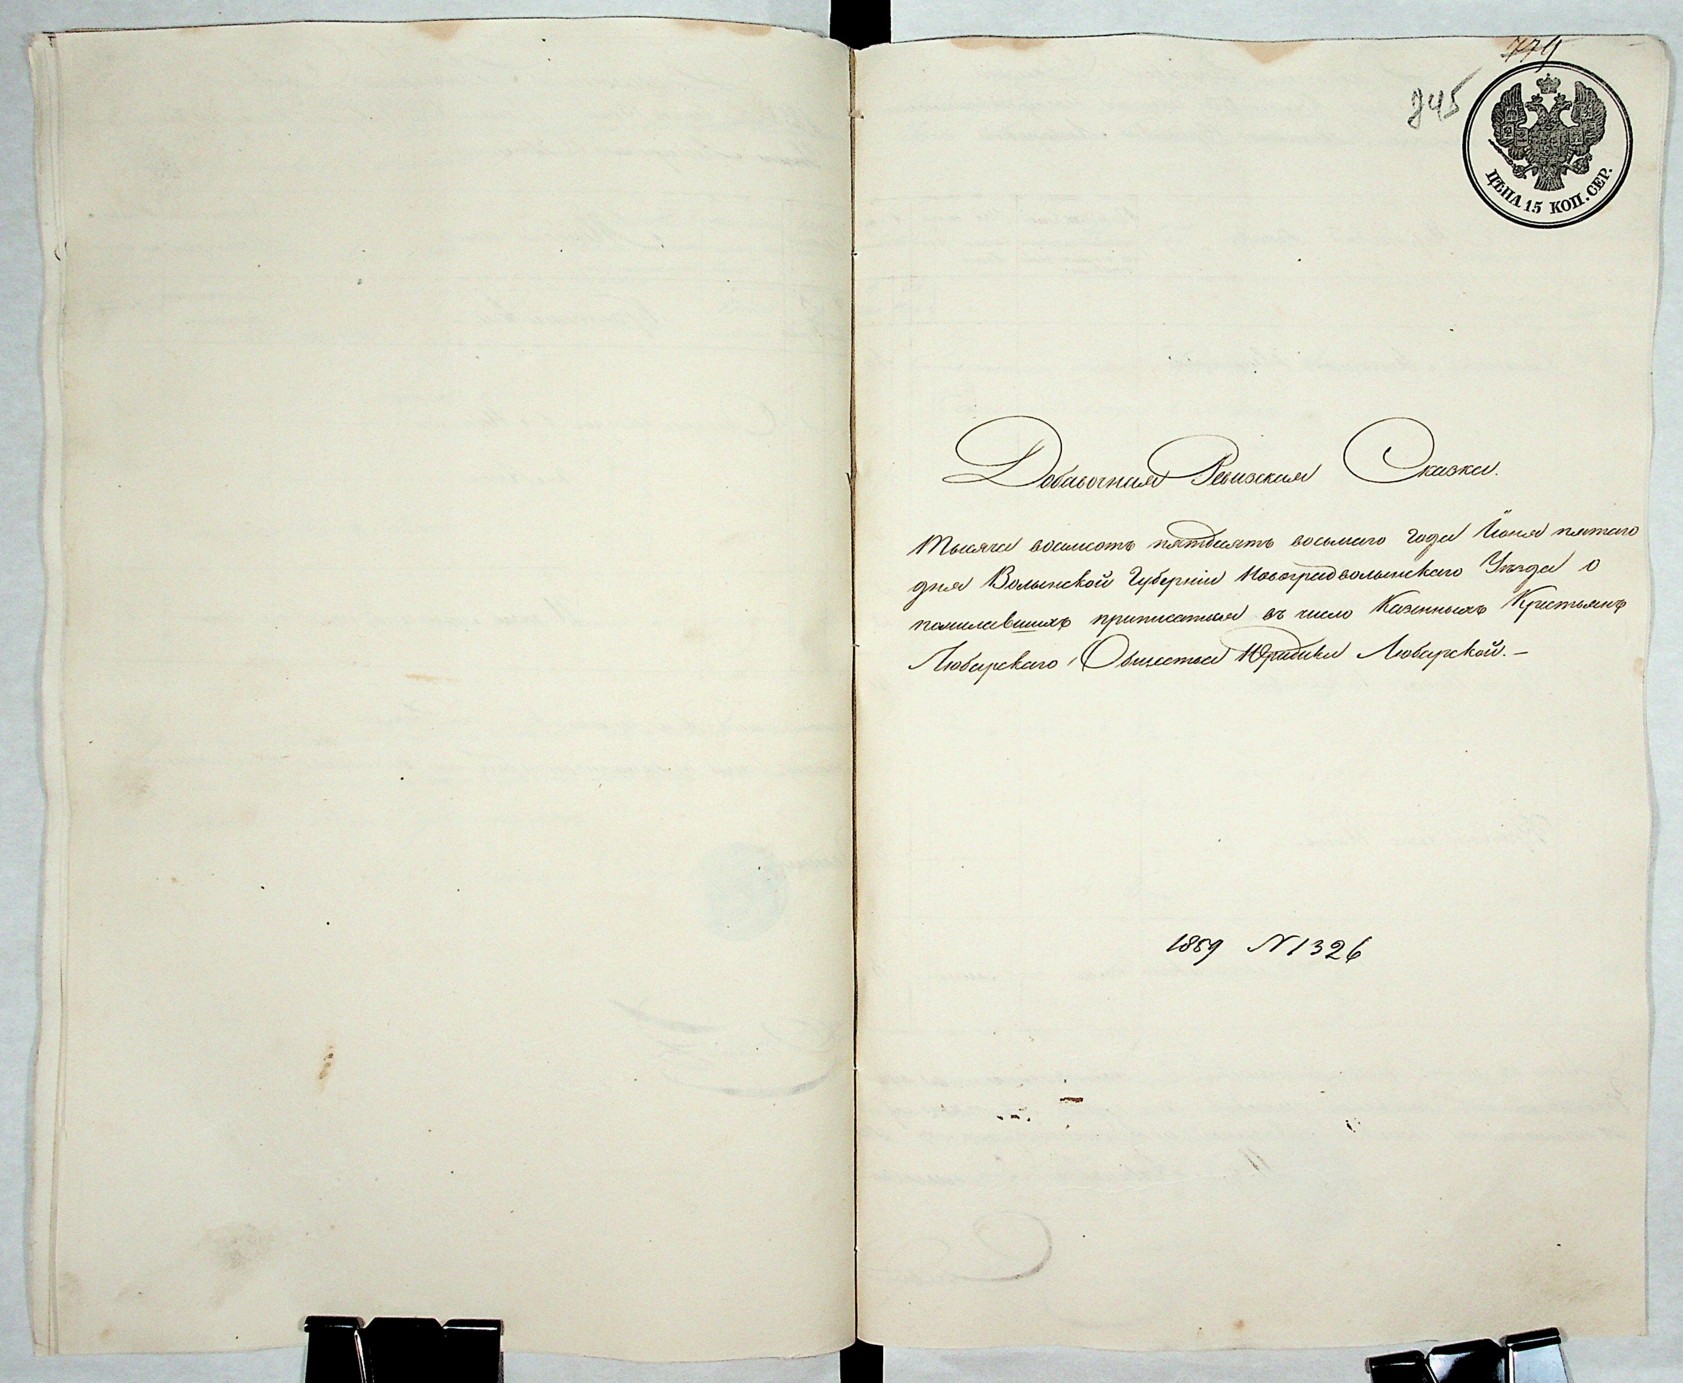 779
845
ЦѢНА 15 КОП. СЕР.
Добавочная Ревизская Сказка.
Тысяча восемсотъ пятдесятъ восьмаго года Июня пятаго
дня Волынской Губерніи Новоградволынскаго Уѣзда о
пожелавшихъ приписатся въ число Казенныхъ Крестьянъ
Любарскаго Общества Юридики Любарской. —
1859 N 1326